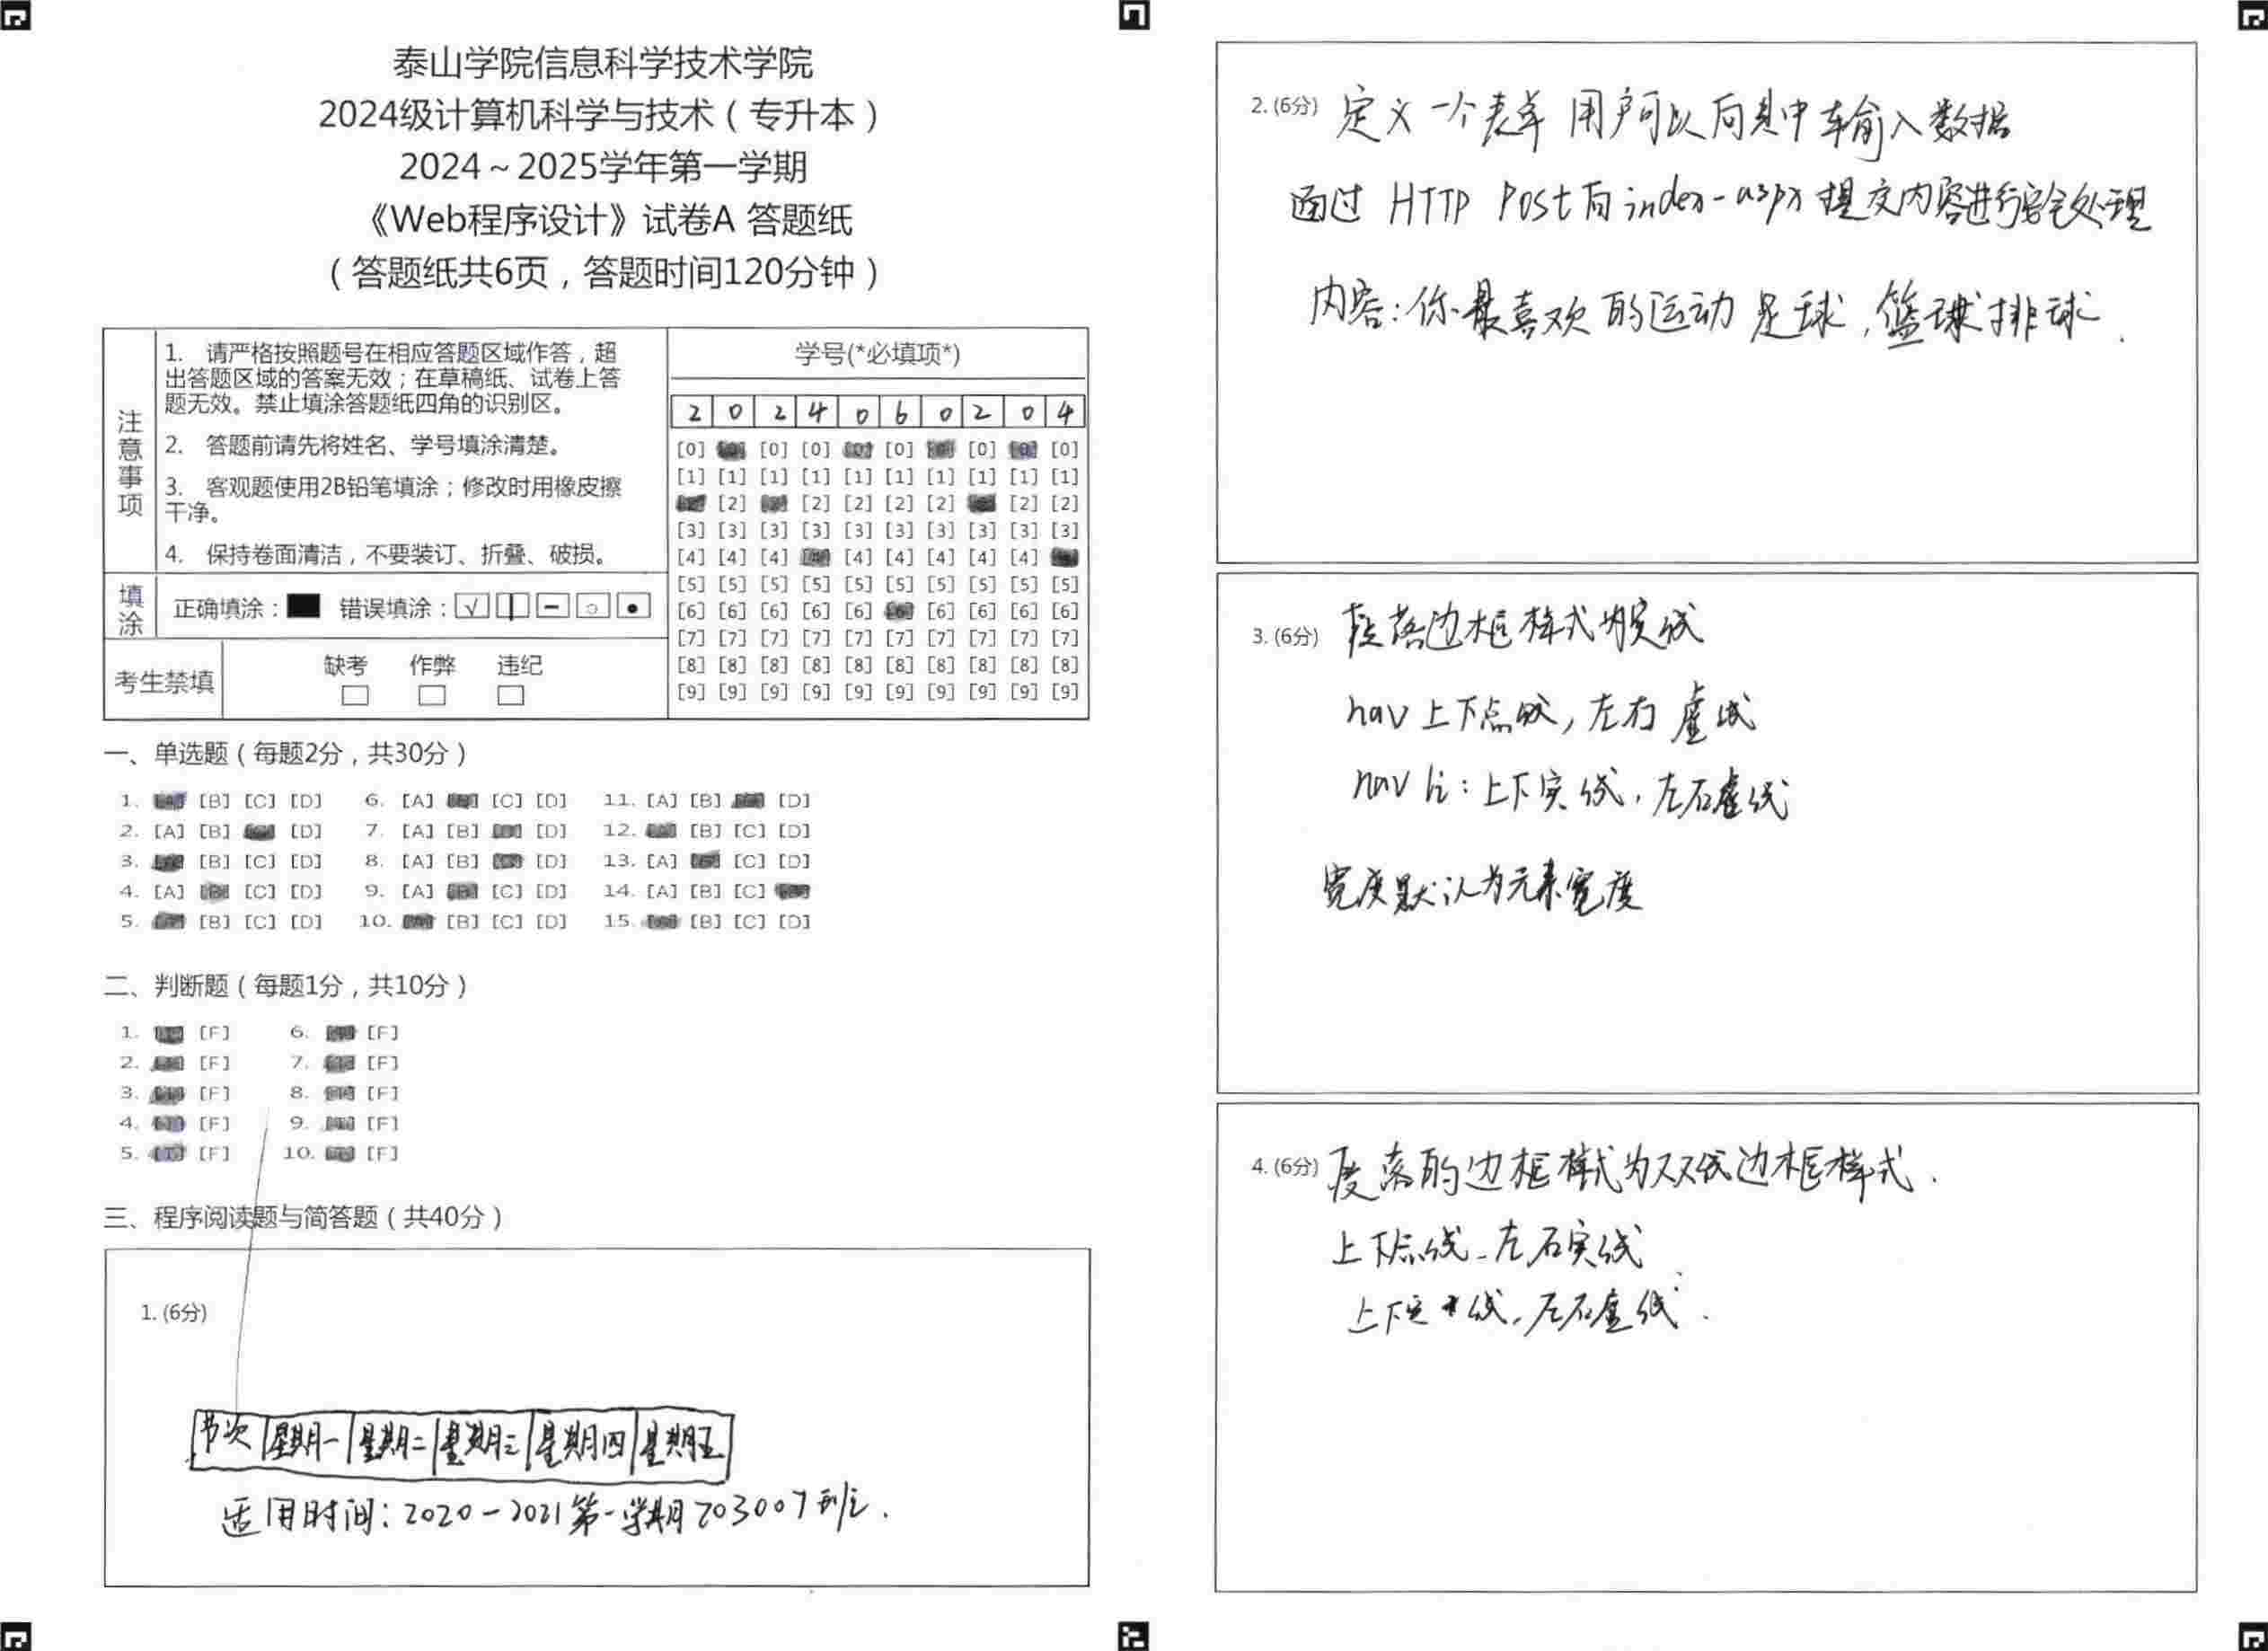 泰山学院信息科学技术学院
2024级计算机科学与技术（专升本）
2024～2025学年第一学期
《Web程序设计》试卷A 答题纸
（答题纸共6页，答题时间120分钟）
注意事项
1. 请严格按照题号在相应答题区域作答，超
出答题区域的答案无效；在草稿纸、试卷上答
题无效。禁止填涂答题纸四角的识别区。
2. 答题前请先将姓名、学号填涂清楚。
3. 客观题使用2B铅笔填涂；修改时用橡皮擦
干净。
4. 保持卷面清洁，不要装订、折叠、破损。
填涂
正确填涂： 错误填涂：
考生禁填
缺考 作弊 违纪
学号(*必填项*)
2 0 2 4 0 6 0 2 0 4
[0] [0] [0] [0] [0] [0]
[1] [1] [1] [1] [1] [1] [1] [1] [1] [1]
[2] [2] [2] [2] [2] [2] [2]
[3] [3] [3] [3] [3] [3] [3] [3] [3] [3]
[4] [4] [4] [4] [4] [4] [4] [4] [4]
[5] [5] [5] [5] [5] [5] [5] [5] [5] [5]
[6] [6] [6] [6] [6] [6] [6] [6] [6] [6]
[7] [7] [7] [7] [7] [7] [7] [7] [7] [7]
[8] [8] [8] [8] [8] [8] [8] [8] [8] [8]
[9] [9] [9] [9] [9] [9] [9] [9] [9] [9]
一、单选题（每题2分，共30分）
1. [A] [B] [C] [D] 6. [A] [C] [D] 11. [A] [B] [D]
2. [A] [B] [D] 7. [A] [B] [D] 12. [B] [C] [D]
3. [B] [C] [D] 8. [A] [B] [D] 13. [A] [C] [D]
4. [A] [C] [D] 9. [A] [C] [D] 14. [A] [B] [C]
5. [B] [C] [D] 10. [B] [C] [D] 15. [B] [C] [D]
二、判断题（每题1分，共10分）
1. [F] 6. [F]
2. [F] 7. [F]
3. [F] 8. [F]
4. [F] 9. [F]
5. [T] [F] 10. [F]
三、程序阅读题与简答题（共40分）
1. (6分)
节次 星期一 星期二 星期三 星期四 星期五
适用时间：2020-2021第一学期203007班.
2. (6分) 定义一个表单 用户可以向其中输入数据
通过 HTTP Post向index-aspx提交内容进行安全处理
内容：你最喜欢的运动 足球，篮球 排球.
3. (6分) 段落边框样式为实线
nav 上下点线，左右 虚线
nav li：上下实线，左右虚线
宽度默认为元素宽度
4. (6分) 段落的边框样式为双线边框样式.
上下点线-左右实线
上下实线，左右虚线.